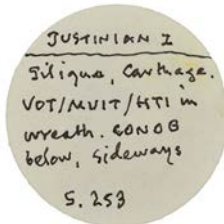 JUSTINIAN I
Siliqua, Carthage.
VOT/MVIT/HTI in
wreath. CONOB
below, sideways
S. 253